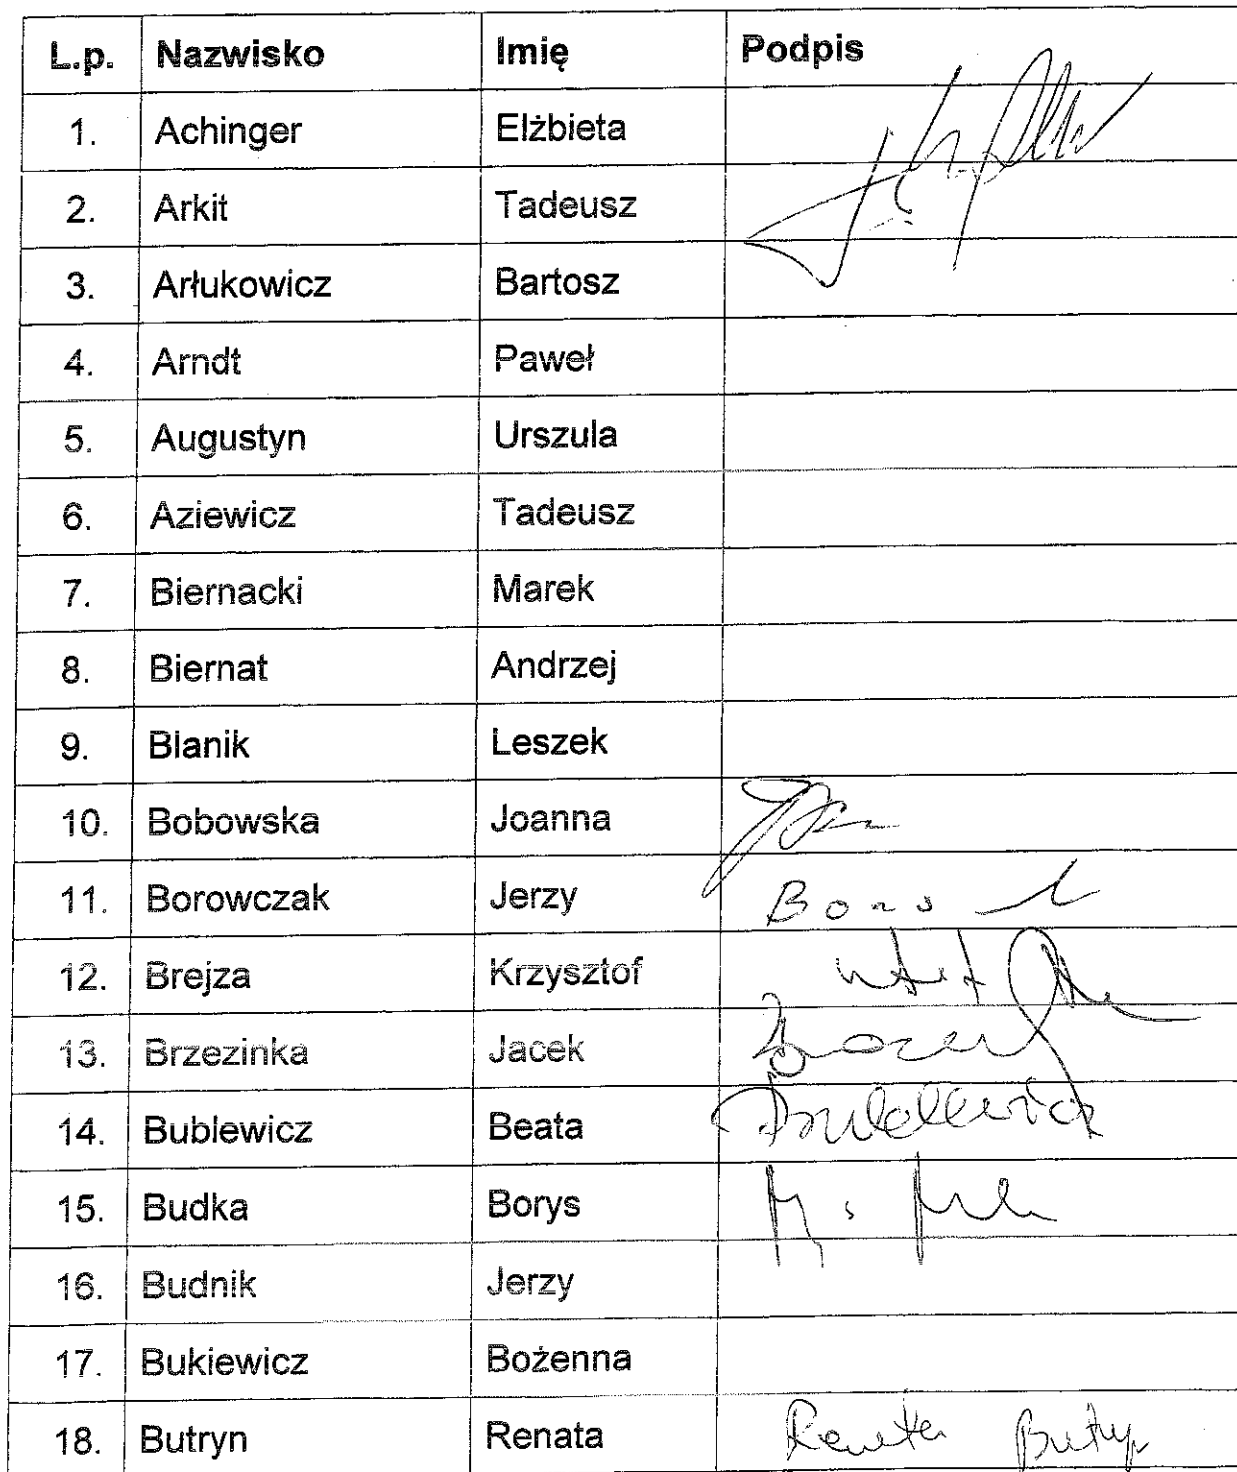 L.p. Nazwisko Imię Podpis
1. Achinger Elżbieta
2. Arkit Tadeusz
3. Arłukowicz Bartosz
4. Arndt Paweł
5. Augustyn Urszula
6. Aziewicz Tadeusz
7. Biernacki Marek
8. Biernat Andrzej
9. Blanik Leszek
10. Bobowska Joanna
11. Borowczak Jerzy
12. Brejza Krzysztof
13. Brzezinka Jacek
14. Bublewicz Beata Bublewicz
15. Budka Borys
16. Budnik Jerzy
17. Bukiewicz Bożenna
18. Butryn Renata Renata Butryn